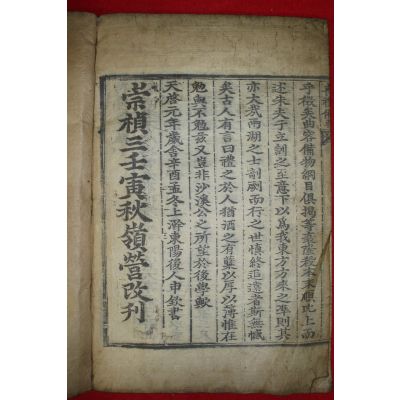 乎徵矣曲容備物綱目俱揭等
述朱夫子立訓之至意下以爲我東方方來之準則其
亦大矣兩湖之士剞劂而行之世愼終追遠者斯無憾
矣古人有言曰禮之於人猶酒之有蘗以厚以薄惟在
勉與不勉玆又豈非沙溪公之所望於後學歟
天啓元年歲舍辛酉孟冬上澣東陽後人申欽書
崇禎三壬寅秋嶺營改刊